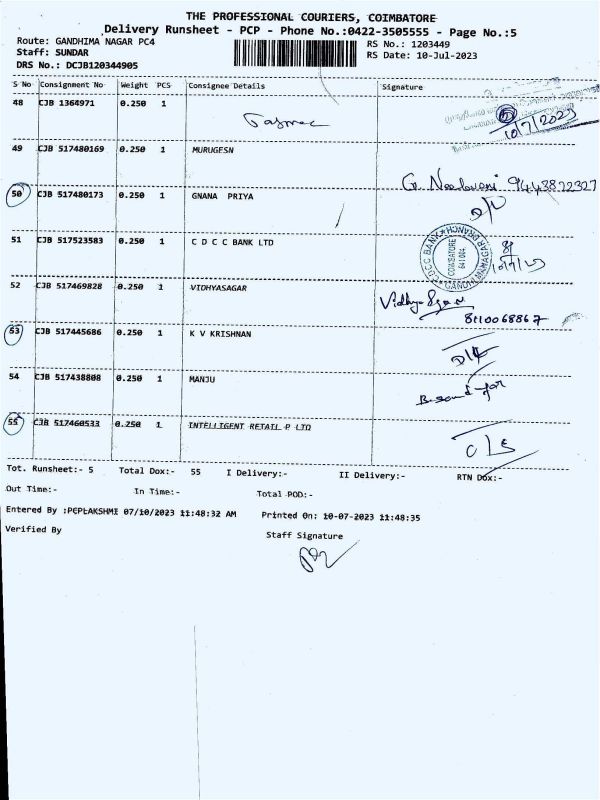 THE PROFESSIONAL COURIERS, COIMBATORE
Delivery Runsheet - PCP - Phone No.:0422-3505555 - Page No.:5
Route: GANDHIMA NAGAR PC4
RS No.: 1203449
Staff: SUNDAR
RS Date: 10-Jul-2023
DRS No.: DCJB120344905
S No Consignment No Weight PCS Consignee Details Signature
48 CJB 1364971 0.250 1
Tasmac
10/7/2023
49 CJB 517480169 0.250 1 MURUGESN
9443872327
50 CJB 517480173 0.250 1 GNANA PRIYA
D/L
51 CJB 517523583 0.250 1 C D C C BANK LTD
COIMBATORE
641 004
10/7/23
52 CJB 517469828 0.250 1 VIDHYASAGAR
Vidhya Sagar
8110068867
53 CJB 517445686 0.250 1 K V KRISHNAN
D/L
54 CJB 517438808 0.250 1 MANJU
55 CJB 517460533 0.250 1 INTELLIGENT RETAIL P LTD
Tot. Runsheet:- 5 Total Dox:- 55 I Delivery:- II Delivery:- RTN Dox:-
Out Time:- In Time:- Total POD:-
Entered By :PEPLAKSHMI 07/10/2023 11:48:32 AM Printed On: 10-07-2023 11:48:35
Verified By Staff Signature